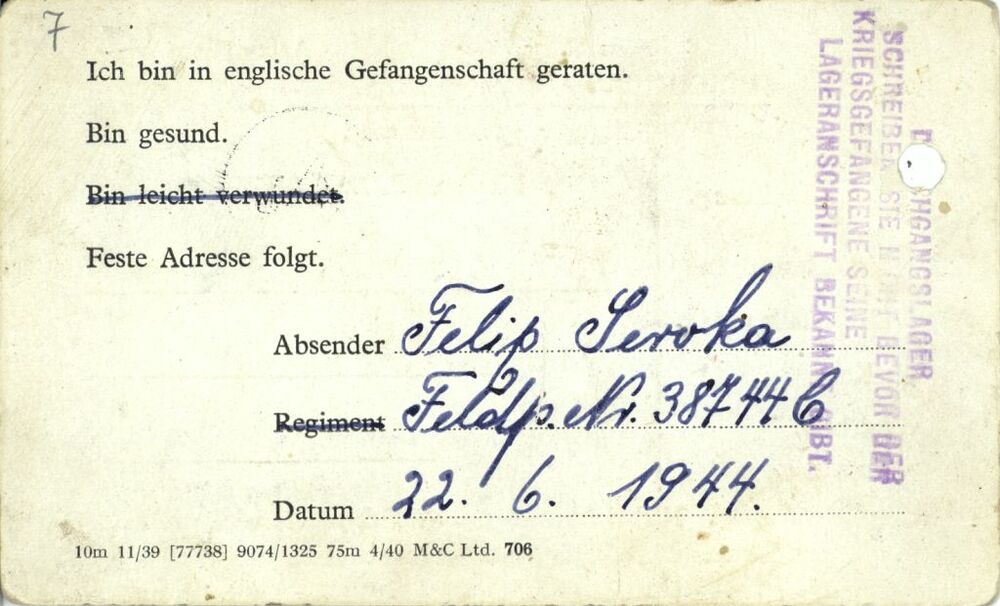 7
Ich bin in englische Gefangenschaft geraten.
Bin gesund.
Bin leicht verwundet.
Feste Adresse folgt.
Absender Felip Seroka
Regiment Feldp. Nr. 38744 C
Datum 22. 6. 1944.
10m 11/39 [77738] 9074/1325 75m 4/40 M&C Ltd. 706
SCHREIBEN SIE BEVOR DER
KRIEGSGEFANGENE SEINE
LAGERANSCHRIFT